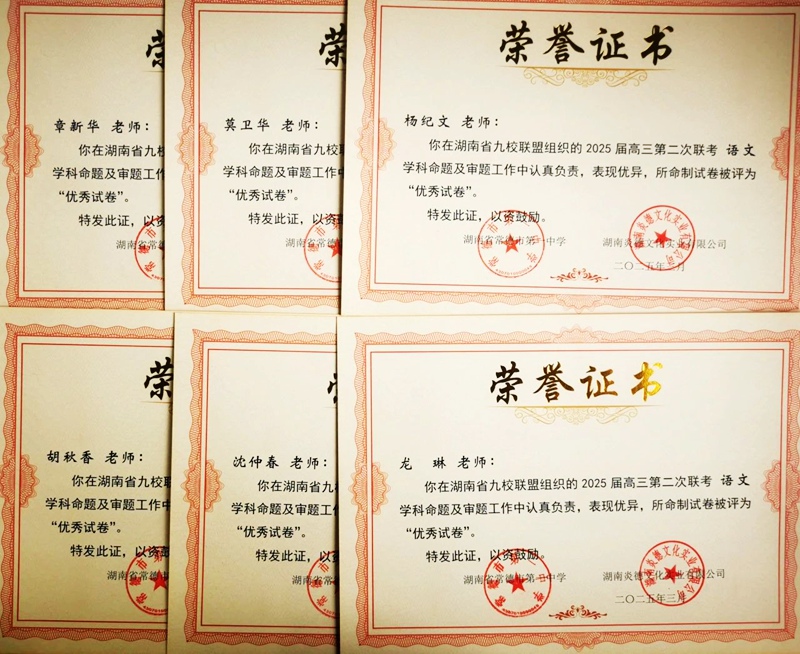 荣
章新华 老师：
你在湖南省九校联
学科命题及审题工作
“优秀试卷”。
特发此证，以资
湖南省常德
荣
莫卫华 老师：
你在湖南省九校联盟组织的
学科命题及审题工作中
“优秀试卷”。
特发此证，以资鼓
湖南省常德
荣誉证书
杨纪文 老师：
你在湖南省九校联盟组织的 2025 届高三第二次联考 语文
学科命题及审题工作中认真负责，表现优异，所命制试卷被评为
“优秀试卷”。
特发此证，以资鼓励。
湖南省常德市第一中学 湖南炎德文化实业有限公司
二〇二五年三月
荣
胡秋香 老师：
你在湖南省九校联
学科命题及审题工作
“优秀试卷”。
特发此证，以资鼓
湖南省常德
荣
沈仲春 老师：
你在湖南省九校
学科命题及审题工作
“优秀试卷”。
特发此证，以资
湖南省常德
荣誉证书
龙 琳 老师：
你在湖南省九校联盟组织的 2025 届高三第二次联考 语文
学科命题及审题工作中认真负责，表现优异，所命制试卷被评为
“优秀试卷”。
特发此证，以资鼓励。
湖南省常德市第一中学 湖南炎德文化实业有限公司
二〇二五年三月